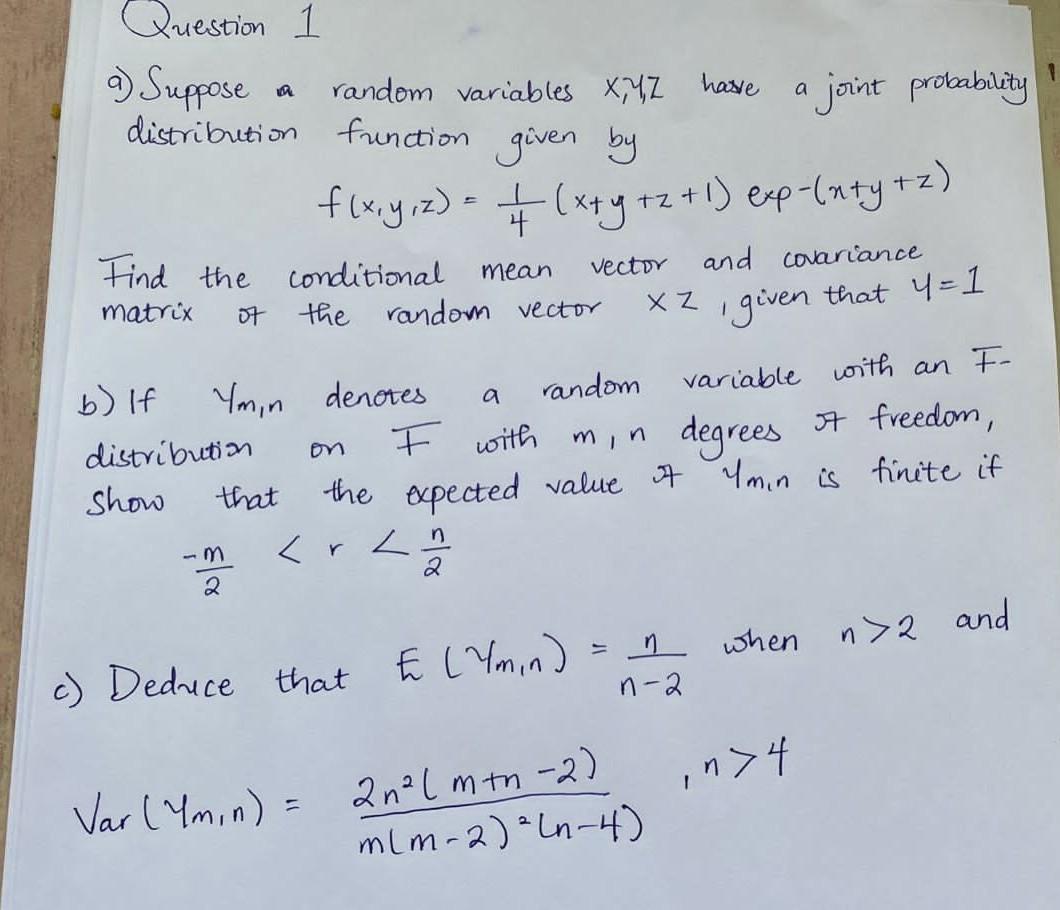 Question 1
a) Suppose a random variables X,Y,Z have a joint probability
distribution function given by
f(x,y,z) = 1/4 (x+y+z+1) exp-(x+y+z)
Find the conditional mean vector and covariance
matrix of the random vector XZ, given that Y=1
b) If Ym,n denotes a random variable with an F-
distribution on F with m,n degrees of freedom,
Show that the expected value of Ym,n is finite if
-m/2 < r < n/2
c) Deduce that E(Ym,n) = n/n-2 when n>2 and
Var(Ym,n) = 2n²(m+n-2)/m(m-2)²(n-4) , n>4